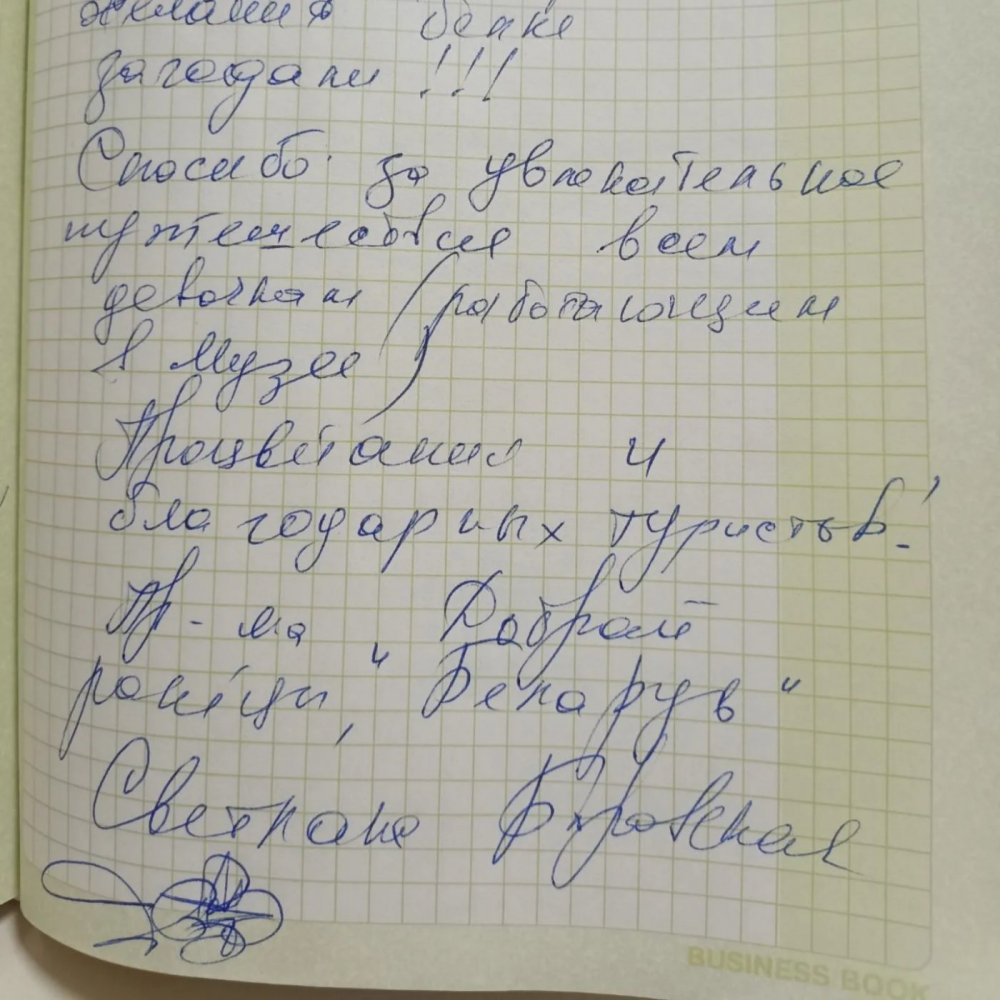 желания белке
загадали !!!
Спасибо за увлекательное
путешествие всем
девочкам (работающим
в Музее)
Процветания и
благодарных туристов!
Пр-ма "Добрай
раніцы, Беларусь"
Светлана Боровская
BUSINESS BOOK